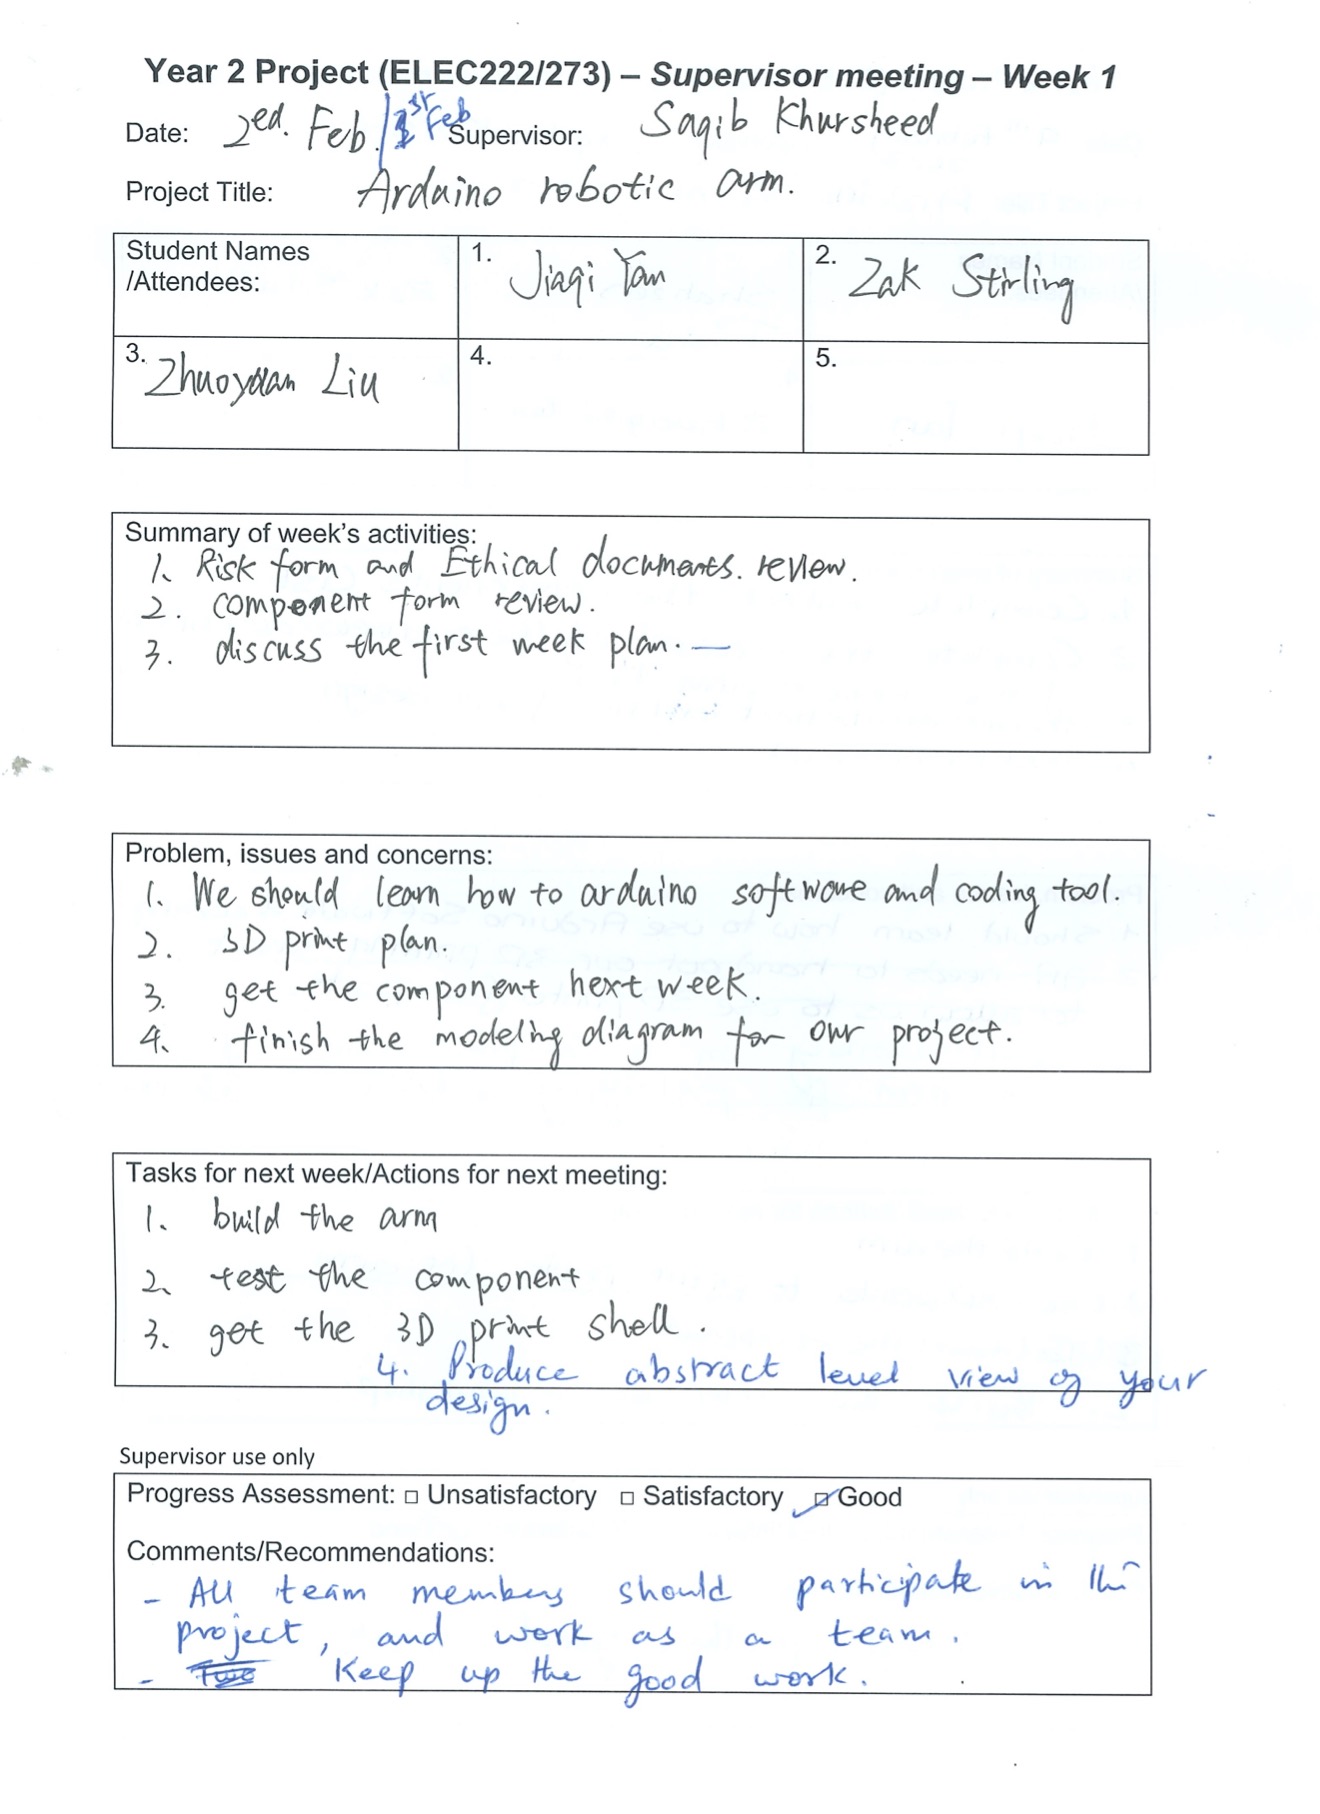 Year 2 Project (ELEC222/273) – Supervisor meeting – Week 1
Date: 2ed. Feb. / 1st Feb Supervisor: Saqib Khursheed
Project Title: Arduino robotic arm.
Student Names
/Attendees:
1. Jiaqi Yan
2. Zak Stirling
3. Zhuoyuan Liu
4.
5.
Summary of week's activities:
1. Risk form and Ethical documents. review.
2. component form review.
3. discuss the first week plan. —
Problem, issues and concerns:
1. We should learn how to arduino software and coding tool.
2. 3D print plan.
3. get the component next week.
4. finish the modeling diagram for our project.
Tasks for next week/Actions for next meeting:
1. build the arm
2. test the component
3. get the 3D print shell.
4. Produce abstract level view of your
design.
Supervisor use only
Progress Assessment: □ Unsatisfactory □ Satisfactory ☑ Good
Comments/Recommendations:
- All team members should participate in this
project, and work as a team.
- Keep up the good work.